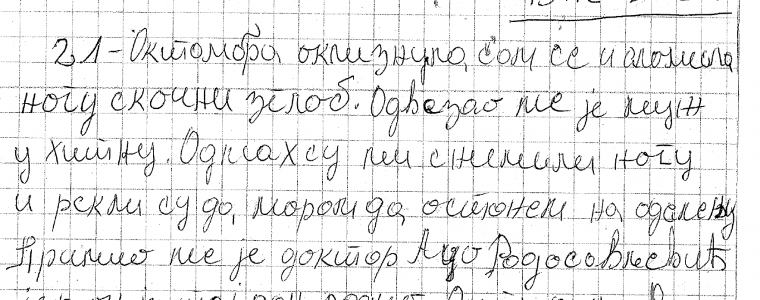 21-Октомбра оклизнула сам се и сломила
ногу скочни зглоб. Одвезао ме је муж
у хитну. Одмах су ми снимили ногу
и рекли су да морам да останем на одалењу
Примио ме је доктор Ацо Радосовљевић